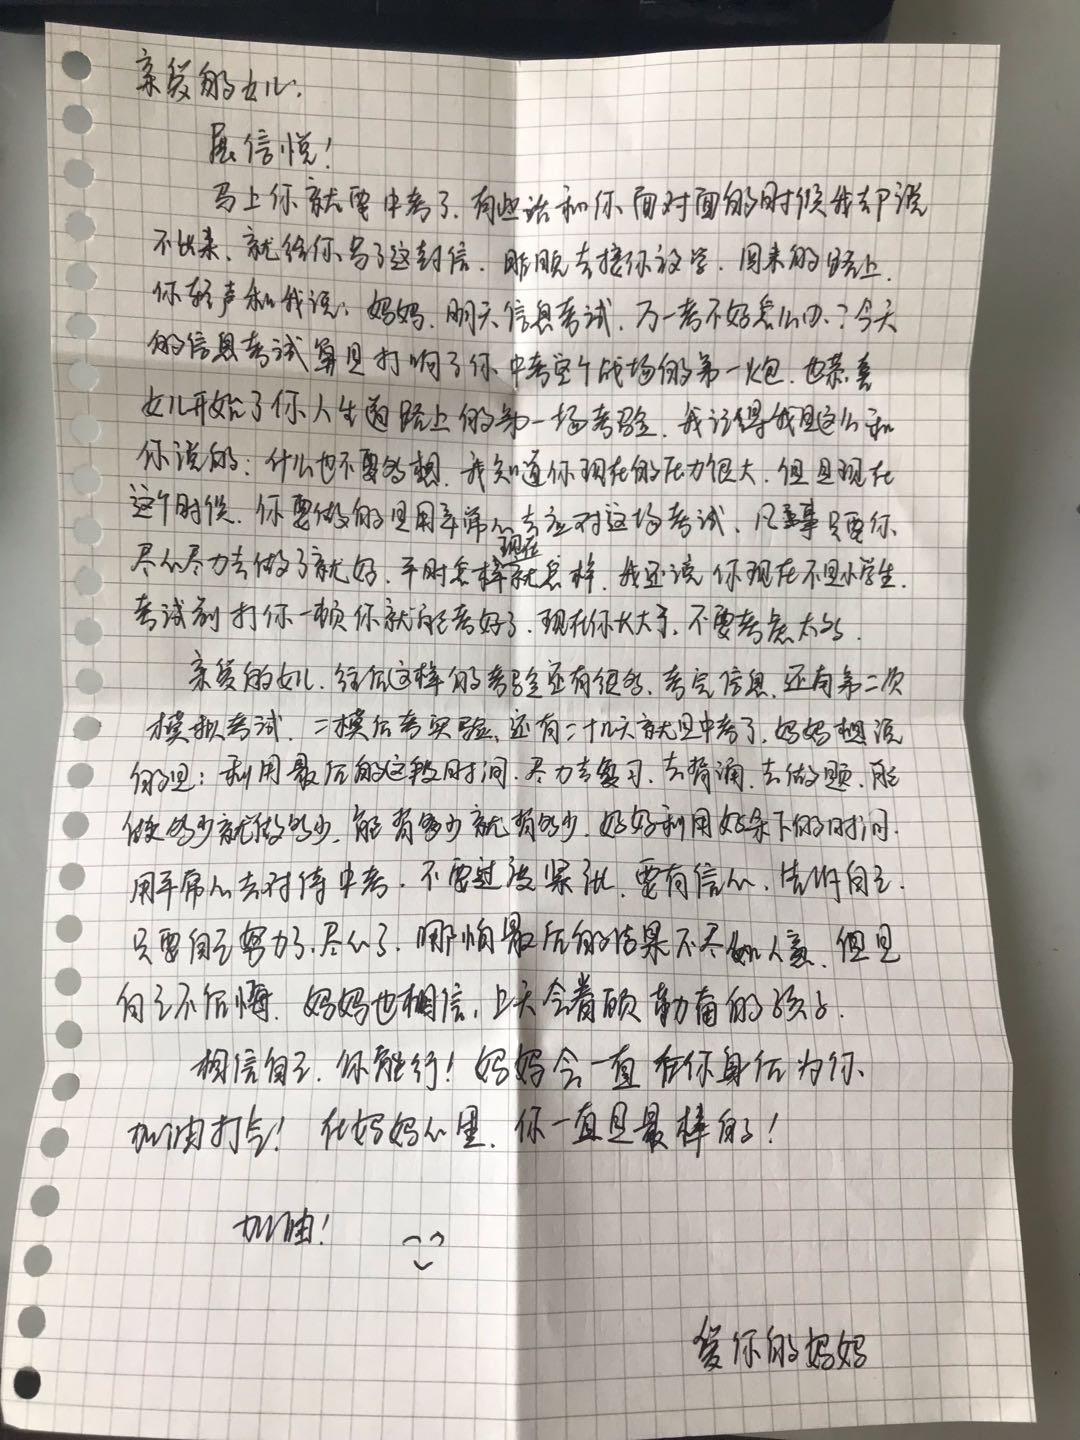 亲爱的女儿.
展信悦!
马上你就要中考了.有些话和你面对面的时候我却说
不出来、就给你写了这封信.昨晚去接你放学.回来的路上.
你轻声和我说:妈妈.明天信息考试.万一考不好怎么办?今天
的信息考试算是打响了你中考这个战场的第一炮.也恭喜
女儿开始了你人生道路上的第一场考验.我记得我是这么和
你说的:什么也不要多想.我知道你现在的压力很大.但是现在
这个时候.你要做的是用平常心去应对这场考试.凡事只要你
尽心尽力去做了就好.平时怎样现在就怎样.我还说你现在不是小学生.
考试前打你一顿你就能考好了.现在你长大了.不要考虑太多.
亲爱的女儿.往后这样的考验还有很多.考完信息.还有第二次
模拟考试.二模后考实验.还有二十几天就是中考了.妈妈想说
的是:利用最后的这段时间.尽力去复习.去背诵.去做题.能
做多少就做多少.能背多少就背多少.好好利用好余下的时间.
用平常心去对待中考.不要过度紧张.要有信心.告诉自己.
只要自己努力了.尽心了.哪怕最后的结果不尽如人意.但是
自己不后悔.妈妈也相信.上天会眷顾勤奋的孩子.
相信自己.你能行!妈妈会一直在你身后为你
加油打气!在妈妈心里.你一直是最棒的!
加油!
爱你的妈妈